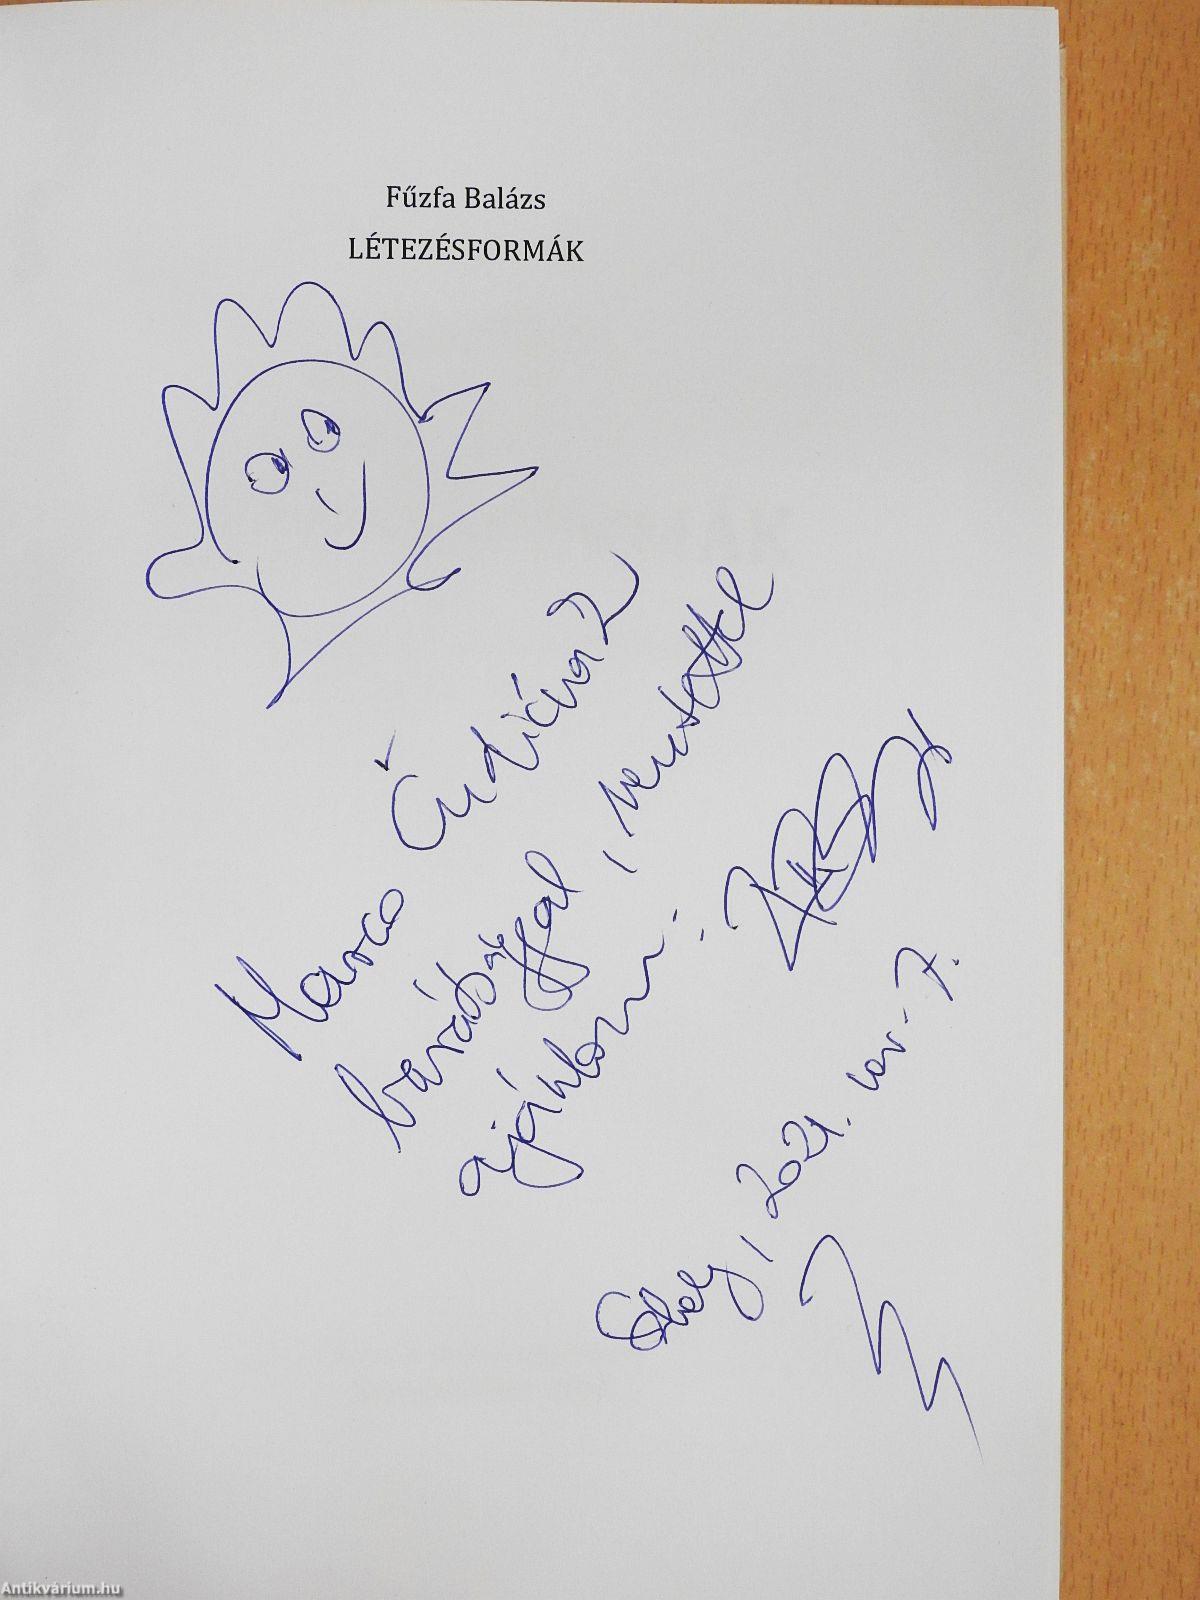 Fűzfa Balázs
LÉTEZÉSFORMÁK
Marco Čudićnak
barátsággal, szeretettel
ajánlom:
Szhely, 2021. nov. 7.
Antikvárium.hu